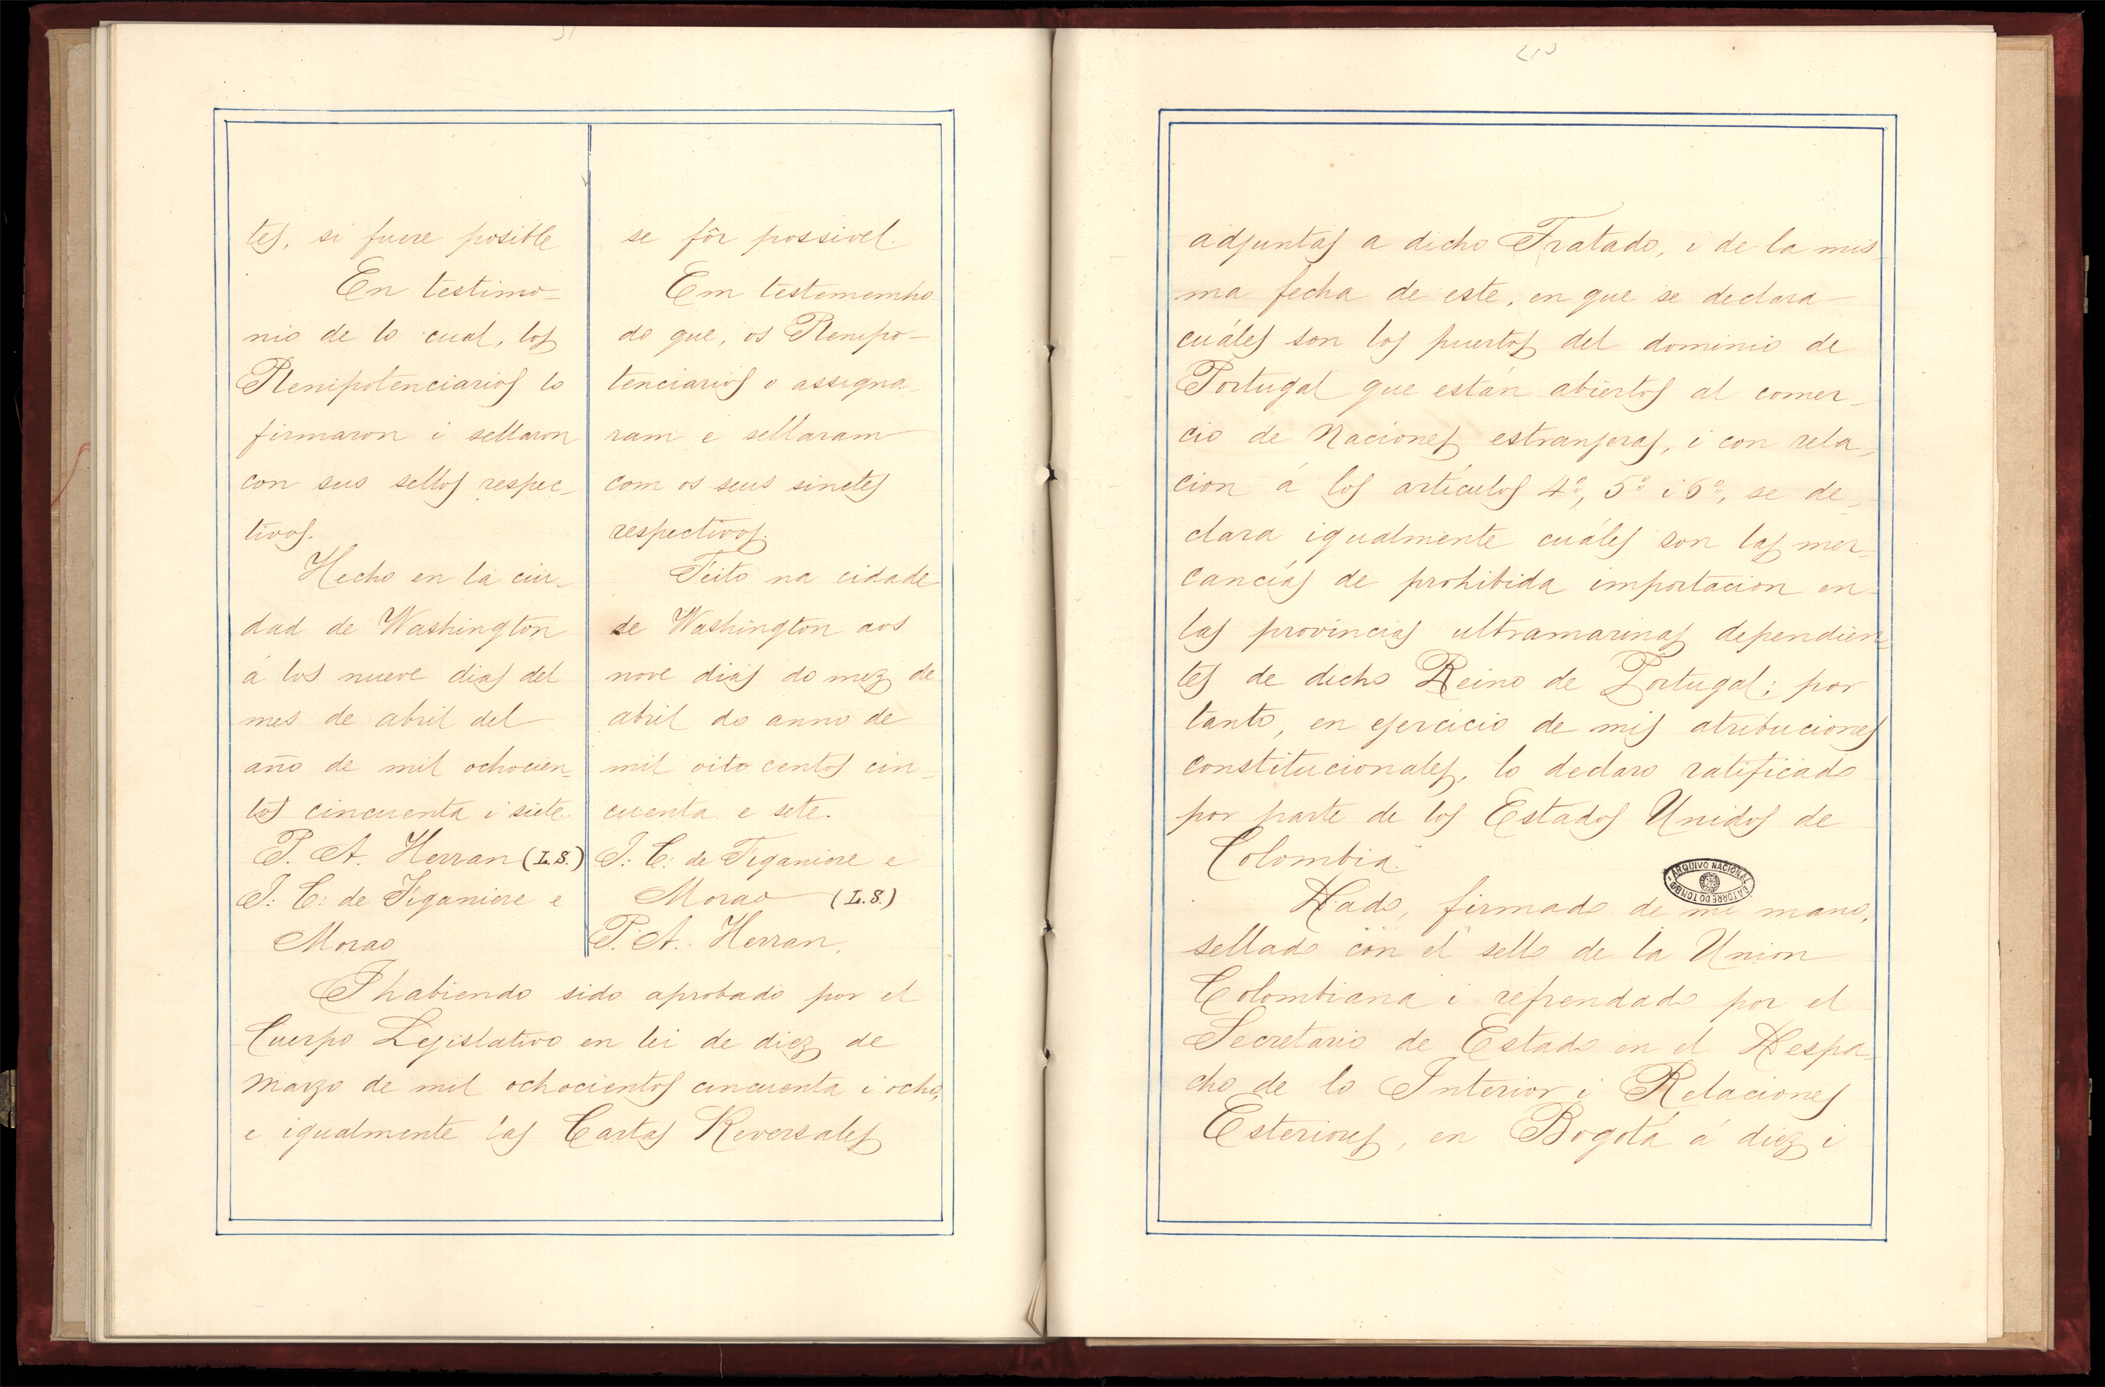 tes, si fuere posible
En testimo-
nio de lo cual, los
Plenipotenciarios lo
firmaron i sellaron
con sus sellos respec-
tivos.
Hecho en la ciu-
dad de Washington
á los nueve dias del
mes de abril del
año de mil ochocien-
tos cincuenta i siete
P. A. Herran (L.S.)
J: C: de Figaniere e
Morao
se fôr possivel.
Em testememho
do que, os Plenipo-
tenciarios o assigna-
ram e sellaram
com os seus sinetes
respectivos.
Feito na cidade
de Washington aos
nove dias do mez de
abril do anno de
mil oito centos cin-
cuenta e sete.
J: C: de Figaniere e
Morao (L.S.)
P. A. Herran.
I habiendo sido aprobado por el
Cuerpo Lejislativo en lei de diez de
marzo de mil ochocientos cincuenta i ocho,
e igualmente las Cartas Reversales
adjuntas a dicho Tratado, i de la mis-
ma fecha de este, en que se declara
cuáles son los puertos del dominio de
Portugal que están abiertos al comer-
cio de Naciones estranjeras, i con rela-
cion á los artículos 4º, 5º i 6º, se de-
clara igualmente cuáles son las mer-
cancías de prohibida importacion en
las provincias ultramarinas dependien-
tes de dicho Reino de Portugal; por
tanto, en ejercicio de mis atribuciones
constitucionales, lo declaro ratificado
por parte de los Estados Unidos de
Colombia.
Dado, firmado de mi mano,
sellado con el sello de la Union
Colombiana i refrendado por el
Secretario de Estado en el Despa-
cho de lo Interior i Relaciones
Esteriores, en Bogotá á diez i
ARQUIVO NACIONAL DA TORRE DO TOMBO